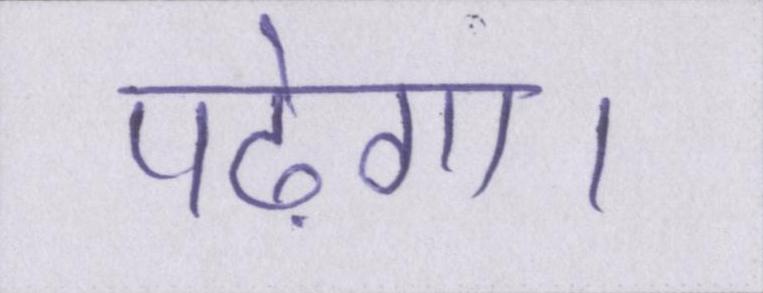 पढ़ेगा।